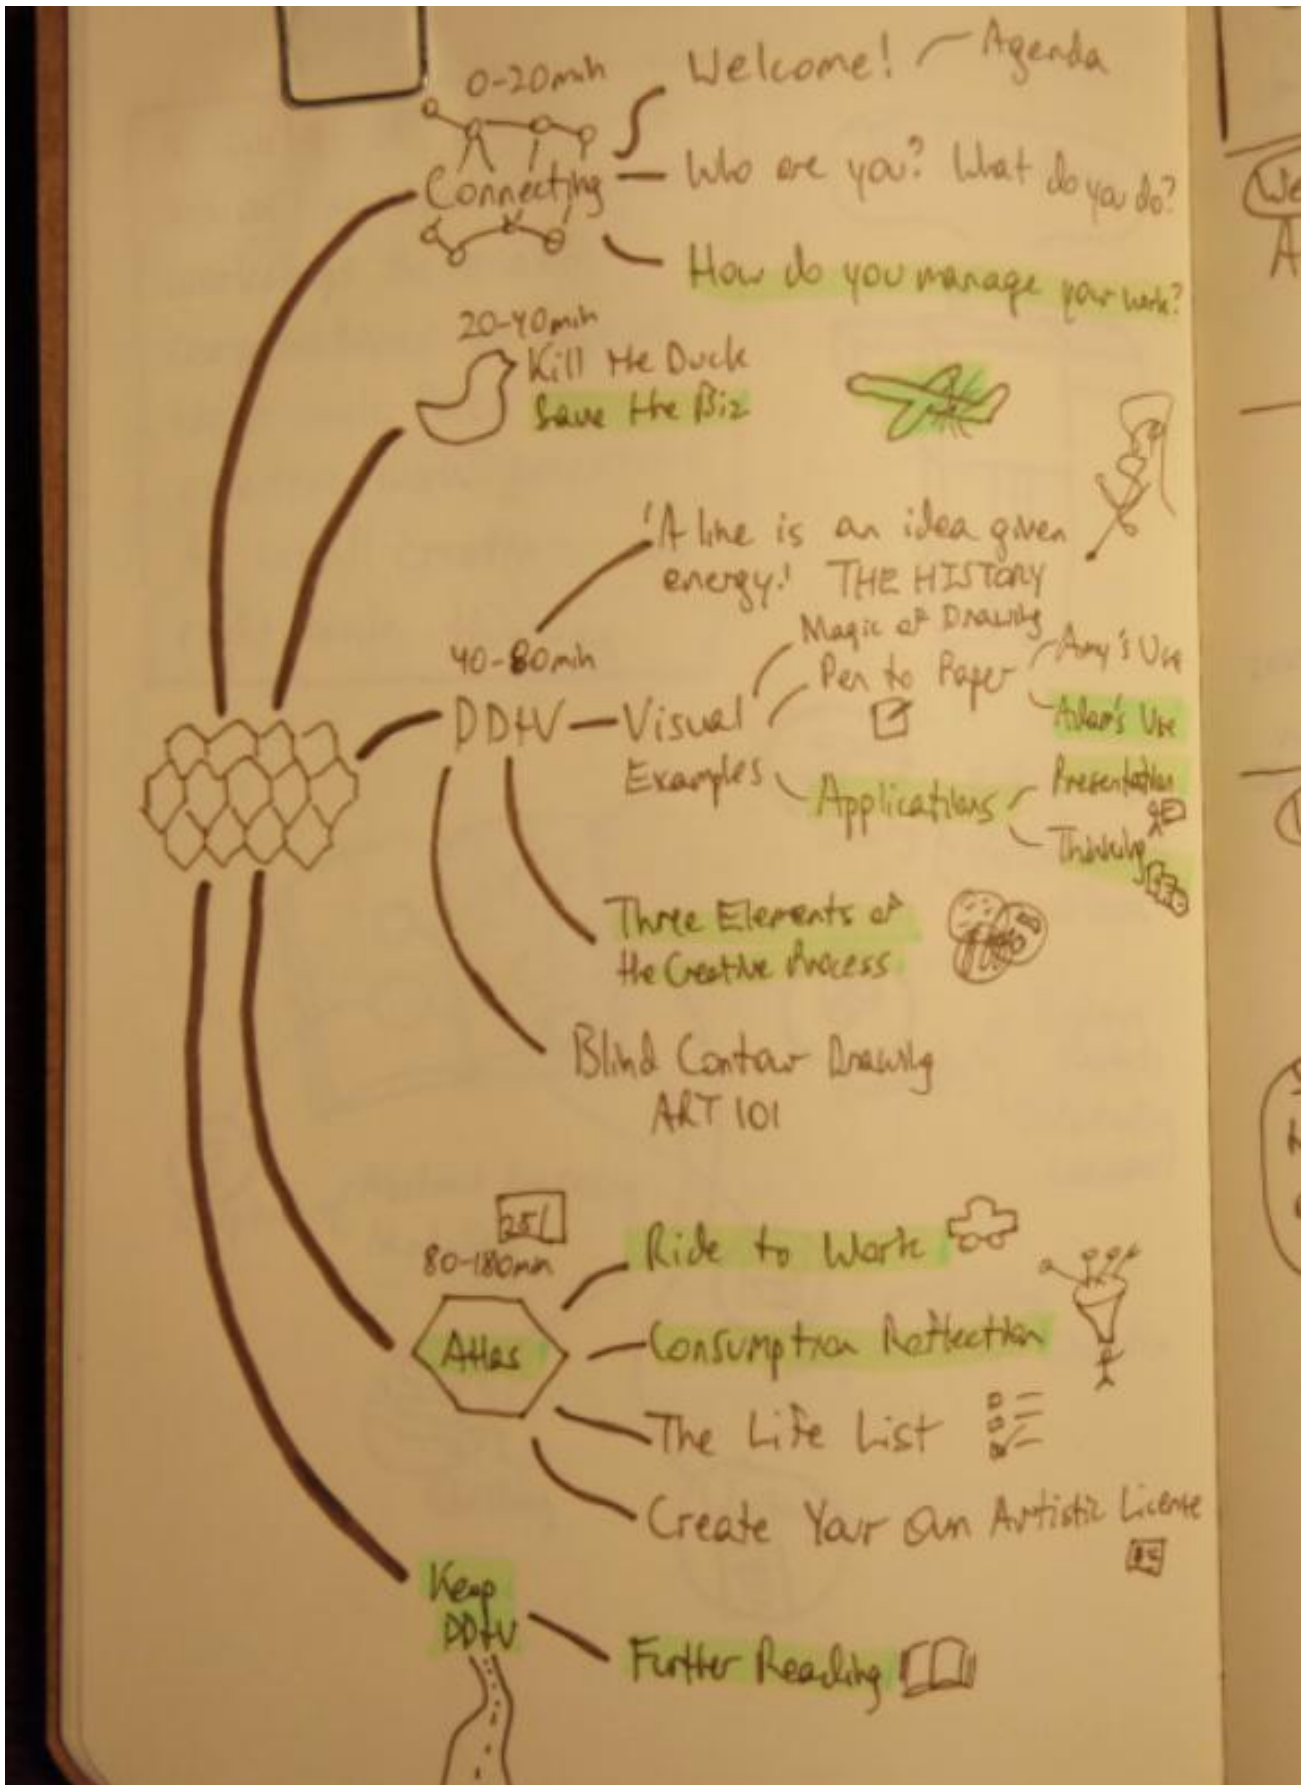 0-20min
Welcome! Agenda
Connecting
Who are you? What do you do?
How do you manage your work?
20-40min
Kill the Duck
Save the Biz
'A line is an idea given
energy.' THE HISTORY
40-80min
DD+V
Visual
Examples
Magic of Drawing
Pen to Paper
Amy's Use
Adam's Use
Applications
Presentation
Thinking
Three Elements of
the Creative Process
Blind Contour Drawing
ART 101
80-180min
Atlas
Ride to Work
Consumption Reflection
The Life List
Create Your Own Artistic License
Keep
DD+V
Further Reading
We
A